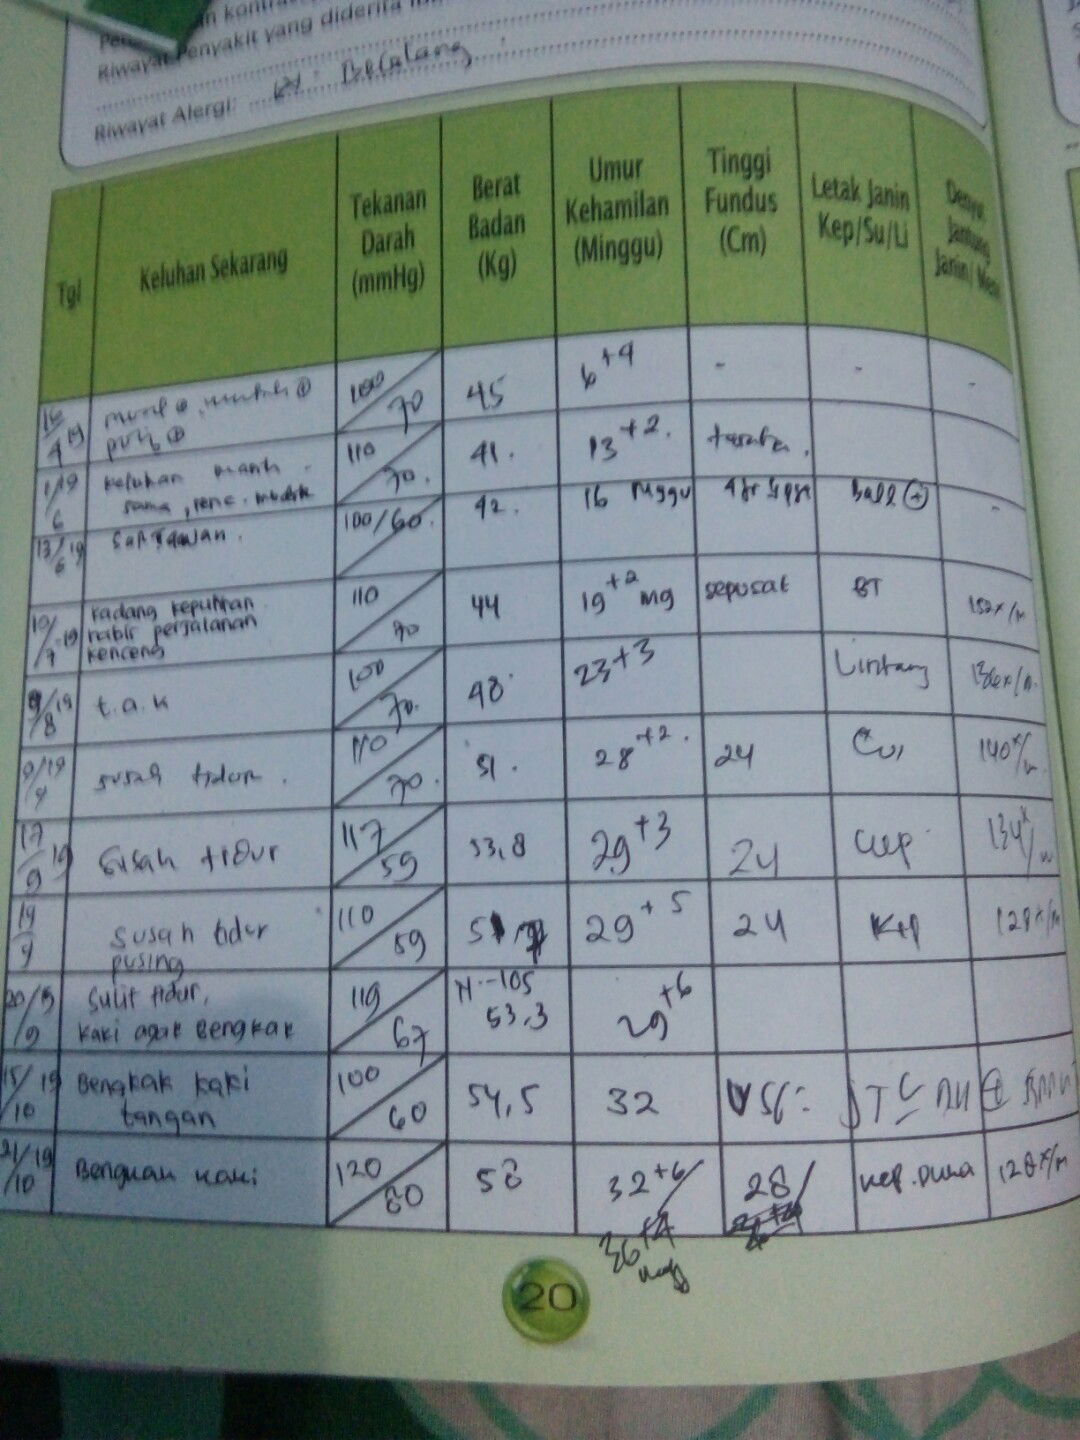 Riwayat Penyakit yang diderita
Riwayat Alergi: Belalang
Tgl
Keluhan Sekarang
Tekanan
Darah
(mmHg)
Berat
Badan
(Kg)
Umur
Kehamilan
(Minggu)
Tinggi
Fundus
(Cm)
Letak Janin
Kep/Su/Li
Denyut
Jantung
Janin/
16/4 19
100/70
45
6+4
-
-
-
1/19
6
keluhan masih
sama
110/70.
41.
13+2.
13/6 19
Sariawan.
100/60.
42.
16 mggu
Ball (+)
-
19/7-19
kadang keputihan
habis perjalanan
kenceng
110/70
44
19+2 mg
sepusat
BT
152x/m
9/8 19
t.a.k
100/70.
48
23+3
Lintang
136x/m.
9/19
9
susah tidur.
110/70.
51.
28+2.
24
140x/m
17/9 19
Susah tidur
117/59
53,8
29+3
24
Kep
134x/m
19/9
susah tidur
pusing
110/59
29+5
24
Kep
128x/m
20/19
9
Sulit tidur,
kaki agak Bengkak
119/67
N: 105
53.3
29+6
15/19
10
Bengkak kaki
tangan
100/60
54,5
32
USG:
21/19
10
Bengkak kaki
120/80
58
32+6/
28/
128x/m
36+4
20